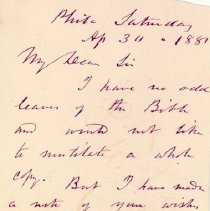 Phila Saturday
Ap 30 1881
My Dear Sir
I have no odd
leaves of the Bible
and would not like
to mutilate a whole
copy. But I have made
a note of your wishes